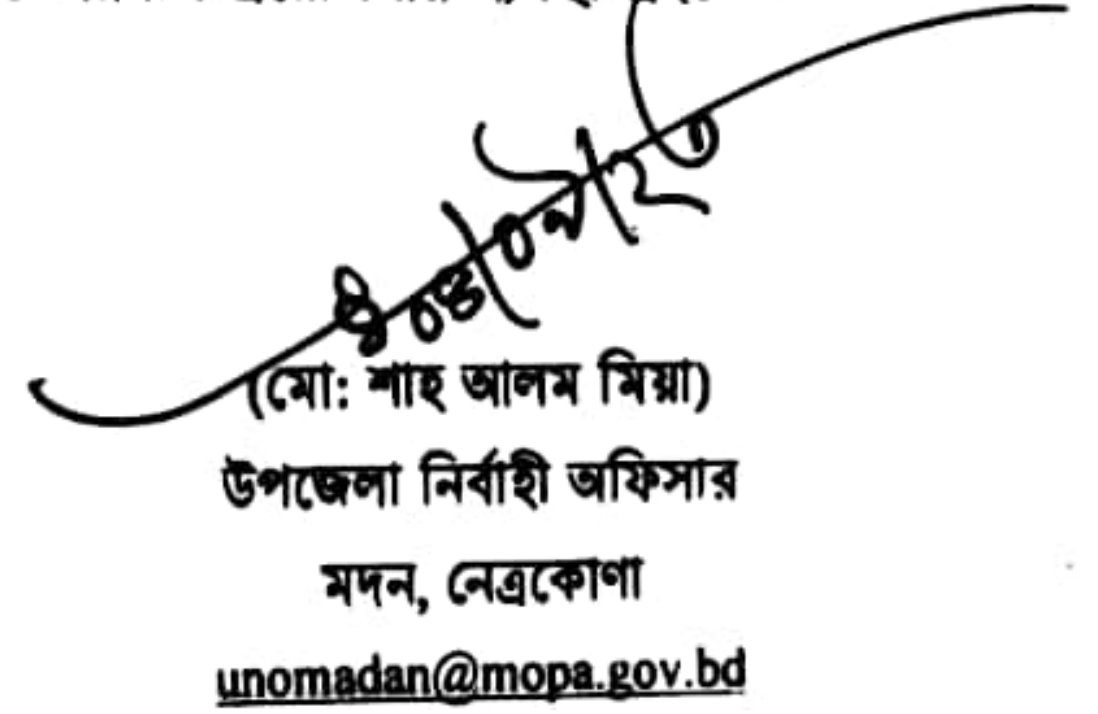 (মো: শাহ আলম মিয়া)
উপজেলা নির্বাহী অফিসার
মদন, নেত্রকোণা
unomadan@mopa.gov.bd